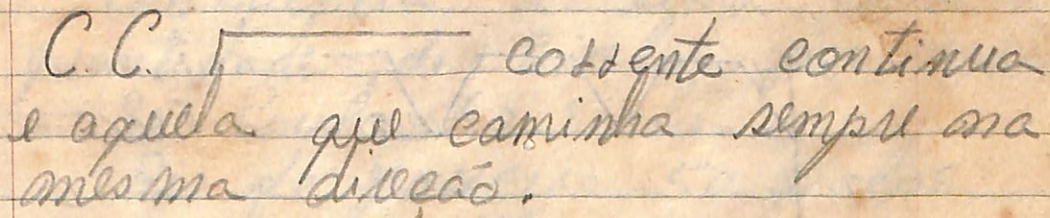 C.C. corrente continua
e aquela que caminha sempre na
mesma direção.